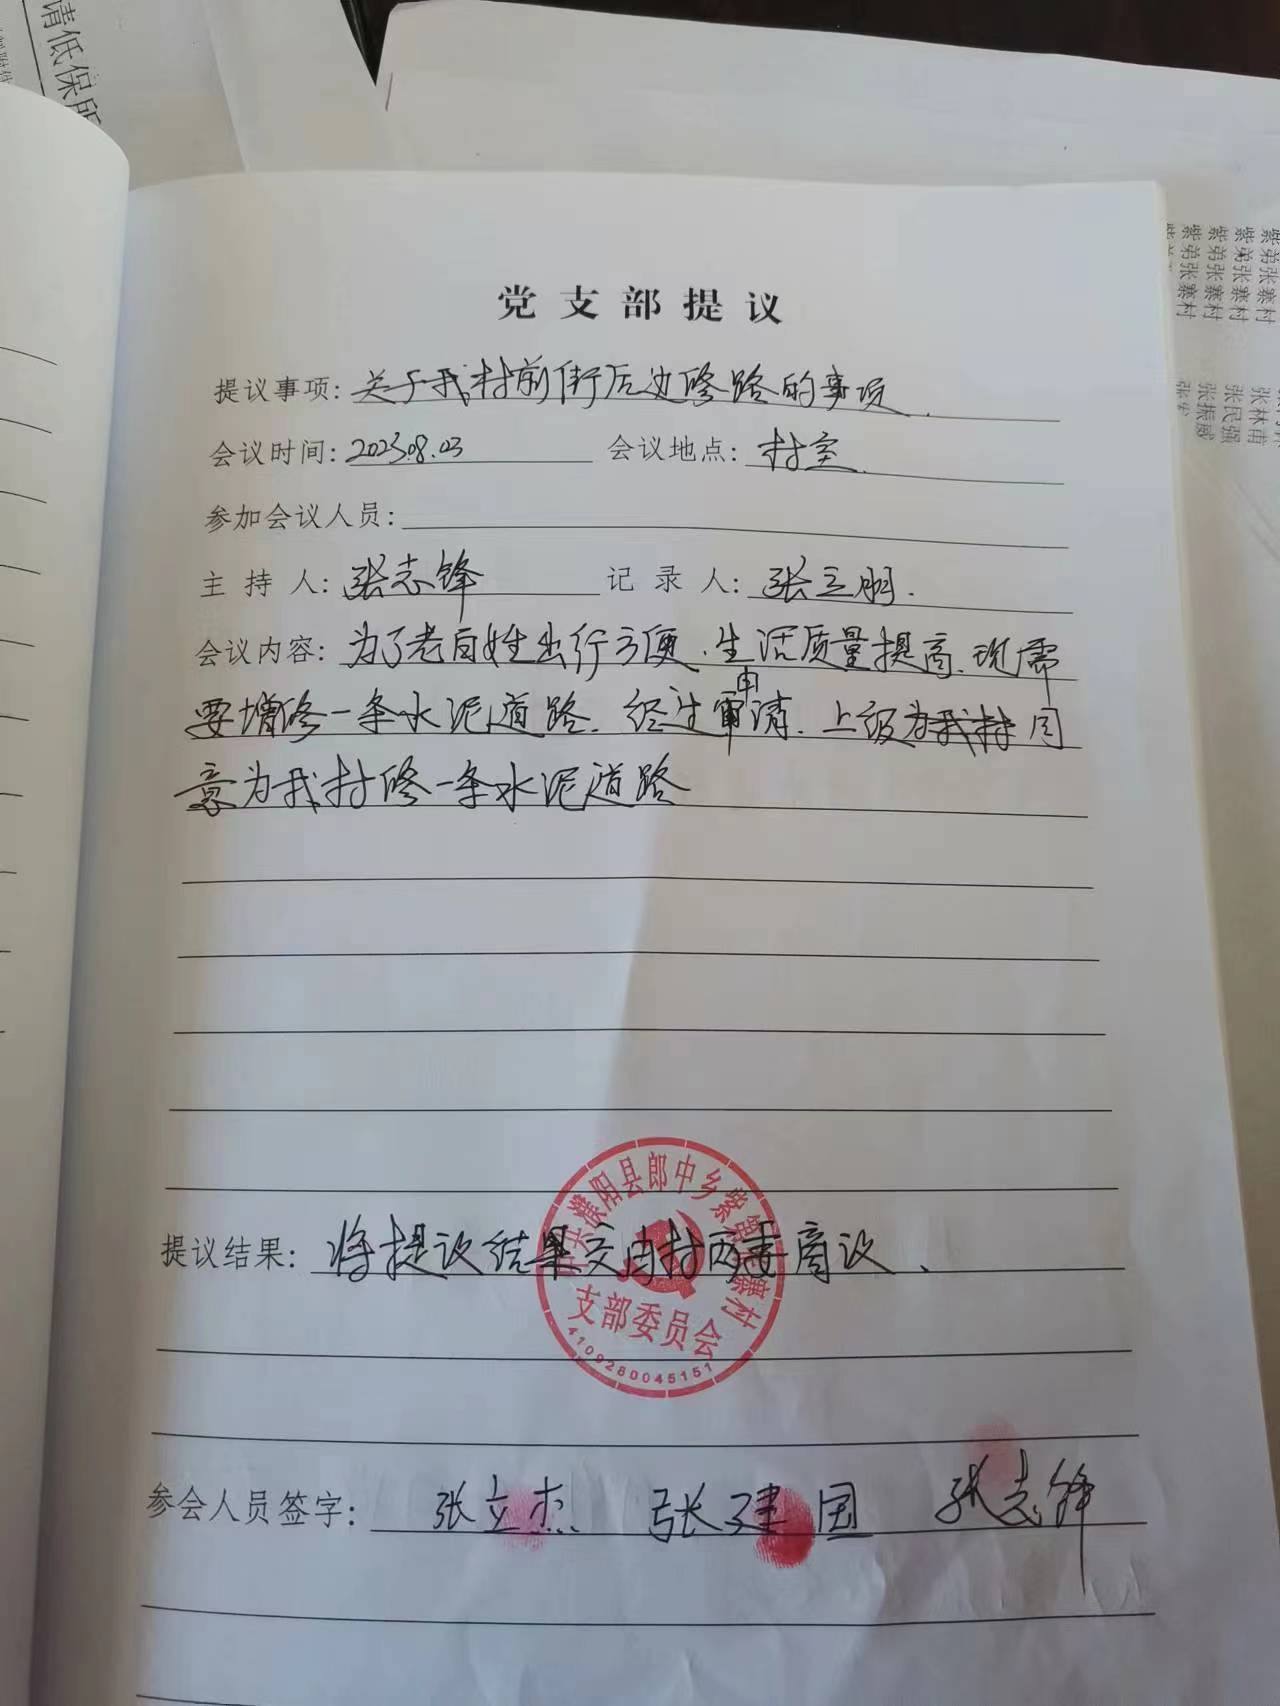 请低保所
紫弟张寨村
紫弟张寨村
紫弟张寨村
紫弟张寨村
张林甫
张民强
张振威
党支部提议
提议事项：关于我村前街后边修路的事项.
会议时间：2023.08.03 会议地点：村室.
参加会议人员：
主持人：张志锋 记录人：张立朋.
会议内容：为了老百姓出行方便、生活质量提高、现需
要增修一条水泥道路. 经过申请. 上级为我村同
意为我村修一条水泥道路
提议结果：将提议结果交由村两委商议、
中共濮阳县郎中乡紫第张寨村
支部委员会
4109280045151
参会人员签字：张立杰 张建国 张志锋